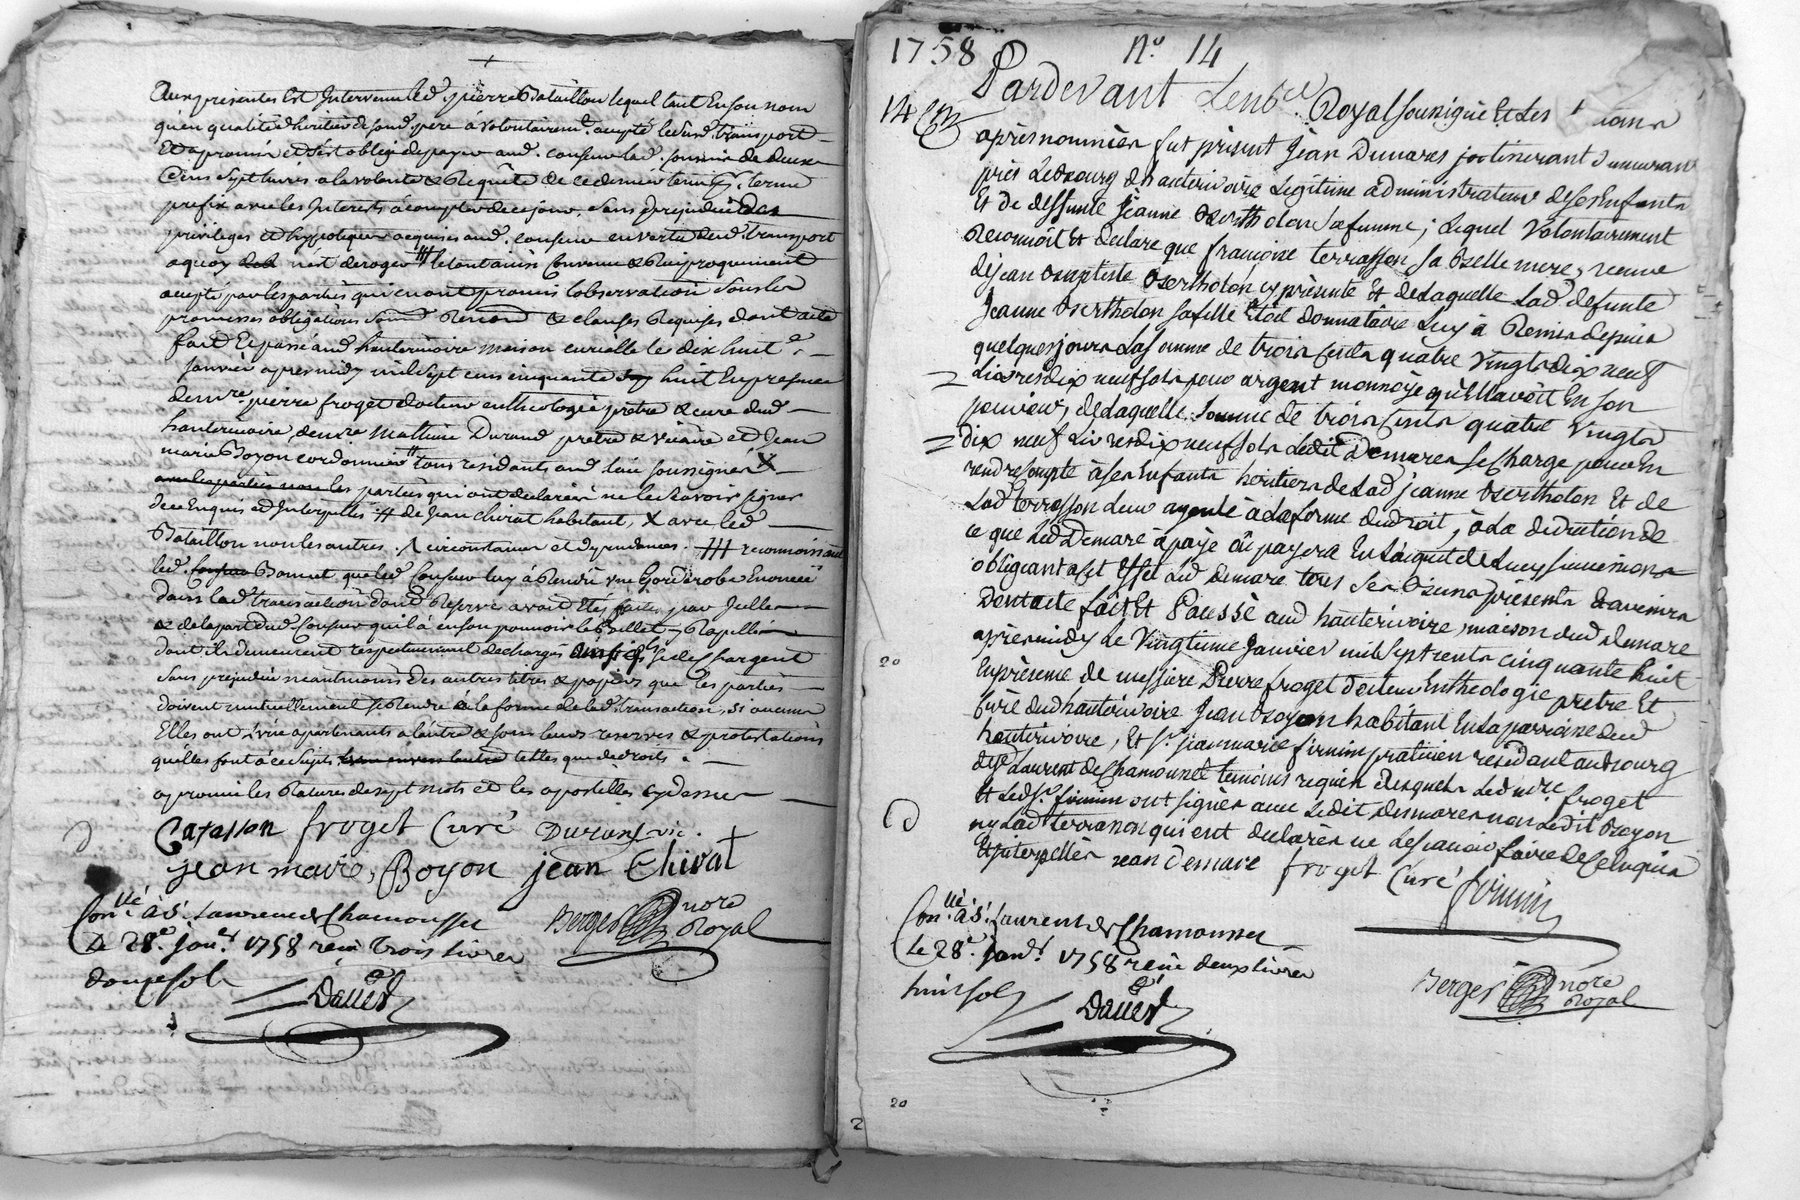 Aux presentes Est Intervenu led. pierre Bataillon lequel tant En son nom
qu'en qualité d'heritier de son d. pere à volontairemt. accepté led. transport
Et a promis et s'est obligé de payer aud. lad. somme de deux
Cens sept livres a la volonté & Requête de ce dernier terme
prefix avec les Interests à compter de ce jour, sans prejudice des
privileges et hypoteques acquises aud. en vertu dud. transport
a quoy n'est derogé le tout ainsi Convenu & Reciproquement
accepté par les parties qui en ont promis l'observation sous les
promesses obligations Renond. & clauses Requises dont acte
fait Et passé aud. hauterivoire maison curialle le dix huite.
Janvier apres midy mil sept cens cinquante huit En presence
de mre. pierre froget docteur en theologie pretre & curé dud.
hauterivoire, de mre Mathieu Durand pretre & vicaire et Jean
marie Boyon cordonnier tous residants aud. lieu soussignés X
les parties qui ont declaré ne le scavoir signer
de ce Enquis et Interpellés # de Jean chirat habitant, X avec led.
Bataillon non les autres. circonstances et dependances. ### reconnoissant
led. Bonnet que led. luy à Rendu une Garderobe Enoncée
dans lad. transaction dont Reserve avoit Eté faite par Icelle
& de la part dud. qu'il à en son pouvoir le Billet Rapellé
dont ils demeurent respectivement decharges
sans prejudice neantmoins des autres titres & papiers que les parties
doivent mutuellement se Rendre à la forme de lad. transaction, si aucuns
Elles ont apartenants à l'autre & sous leurs reserves & protestations
qu'elles font à ce sujet telles que de droit.
aprouvé les Ratures de sept mots et les apostilles cy dessus
Catassen froget Curé Durand vic.
jean marie, Boyon jean Chirat
Conllé. à St. Laurent de Chamousset
Le 28e. janvr. 1758 reçu trois livres
douze sols
Dauest
Berger nore
Royal
1758 No. 14
14
Pardevant Le nore Royal soussigné Et Les
après nommés fut présent Jean Dumarest demeurant
près Le Bourg d'hauterivoire Legitime administrateur de ses Enfants
Et de deffunte Jeanne Bertholon sa femme; Lequel Volontairement
Reconnoit Et declare que françoise terrasson sa Belle mere, veuve
de jean Baptiste Bertholon cy présente Et de Laquelle Lad. defunte
Jeanne Bertholon sa fille Etoit donnataire Luy à Remis depuis
quelques jours La somme de trois Cents quatre Vingts dix neuf
Livres dix neuf sols pour argent monnoye qu'Elle avoit En son
pouvoir, de Laquelle somme de trois Cents quatre Vingts
dix neuf Livres dix neuf sols Ledit Demares se Charge pour En
rendre Compte à ses Enfants heritiers de Lad. jeanne Bertholon Et de
Lad. terrasson Leur ayeule à La forme du droit, à La deduction de
ce que Led. Demare à payé ou payera En L'acquit de
obligeant a cet Effet Led. Demare tous ses Biens présents & avenirs
Dont acte fait Et Passé aud. hauterivoire, maison dud. Dumare
après midy Le Vingtieme Janvier mil sept cents cinquante huit
En présence de messire Pierre froget docteur En theologie pretre Et
Curé dud. hauterivoire Jean Boyon habitant En La parroisse dud.
hauterivoire, Et Sr. jean marie firmin praticien residant au Bourg
de St Laurent de Chamousset temoins requis Desquels Led. mre. froget
Et Led. Sr. firmin ont signés avec Ledit Demares non Ledit Boyon
ny Lad. terrasson qui ont declarés ne Le scavoir faire de Ce Enquis
Et Interpellés jean demare froget Curé firmin
Conllé. à St. Laurent de Chamousset
Le 28e. janvr. 1758 reçu deux livres
huit sols
Dauest
Berger nore
Royal
20
20
2